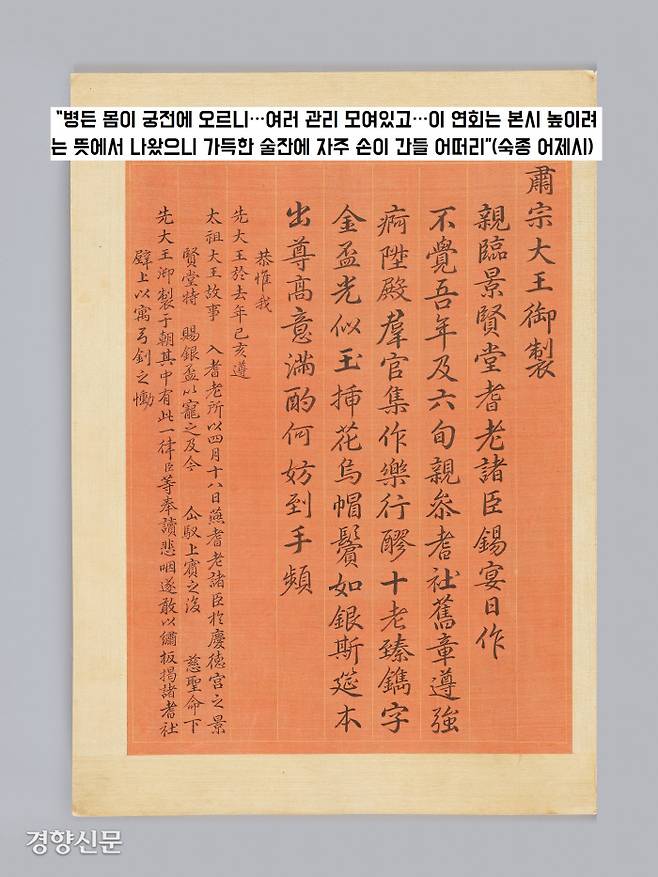 "병든 몸이 궁전에 오르니…여러 관리 모여있고…이 연회는 본시 높이려
는 뜻에서 나왔으니 가득한 술잔에 자주 손이 간들 어떠리"(숙종 어제시)
肅宗大王御製
親臨景賢堂耆老諸臣錫宴日作
不覺吾年及六旬親叅耆社舊章遵強
痾陞殿羣官集作樂行醪十老臻鐫字
金盃光似玉揷花烏帽鬢如銀斯筵本
出尊高意滿酌何妨到手頻
恭惟我
先大王於去年己亥遵
太祖大王故事 入耆老所以四月十八日燕耆老諸臣於慶德宮之景
賢堂特 賜銀盃以寵之及今 仙馭上賓之後 慈聖命下
先大王御製于朝其中有此一律臣等奉讀悲咽遂敢以繡板揭諸耆社
壁上以寓弓劍之慟
경향신문